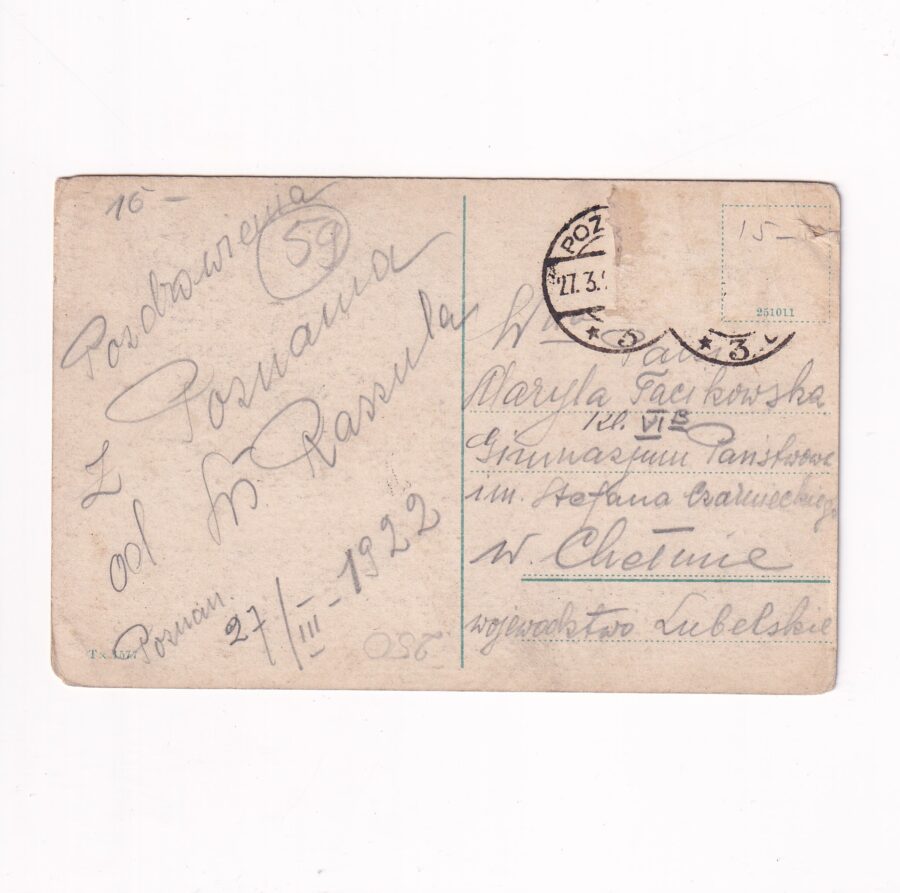 16 -
59
Pozdrowienia
z Poznania
od Św Rassula
Poznań. 27/III - 1922
250
Tx 1577
POZ
27.3.
* 5
* 3.
15 -
251011
W
Maryla Facikowska
Kl. VI B
Gimnazjum Państwowe
im. Stefana Czarnieckiego
w. Chełmie
województwo Lubelskie